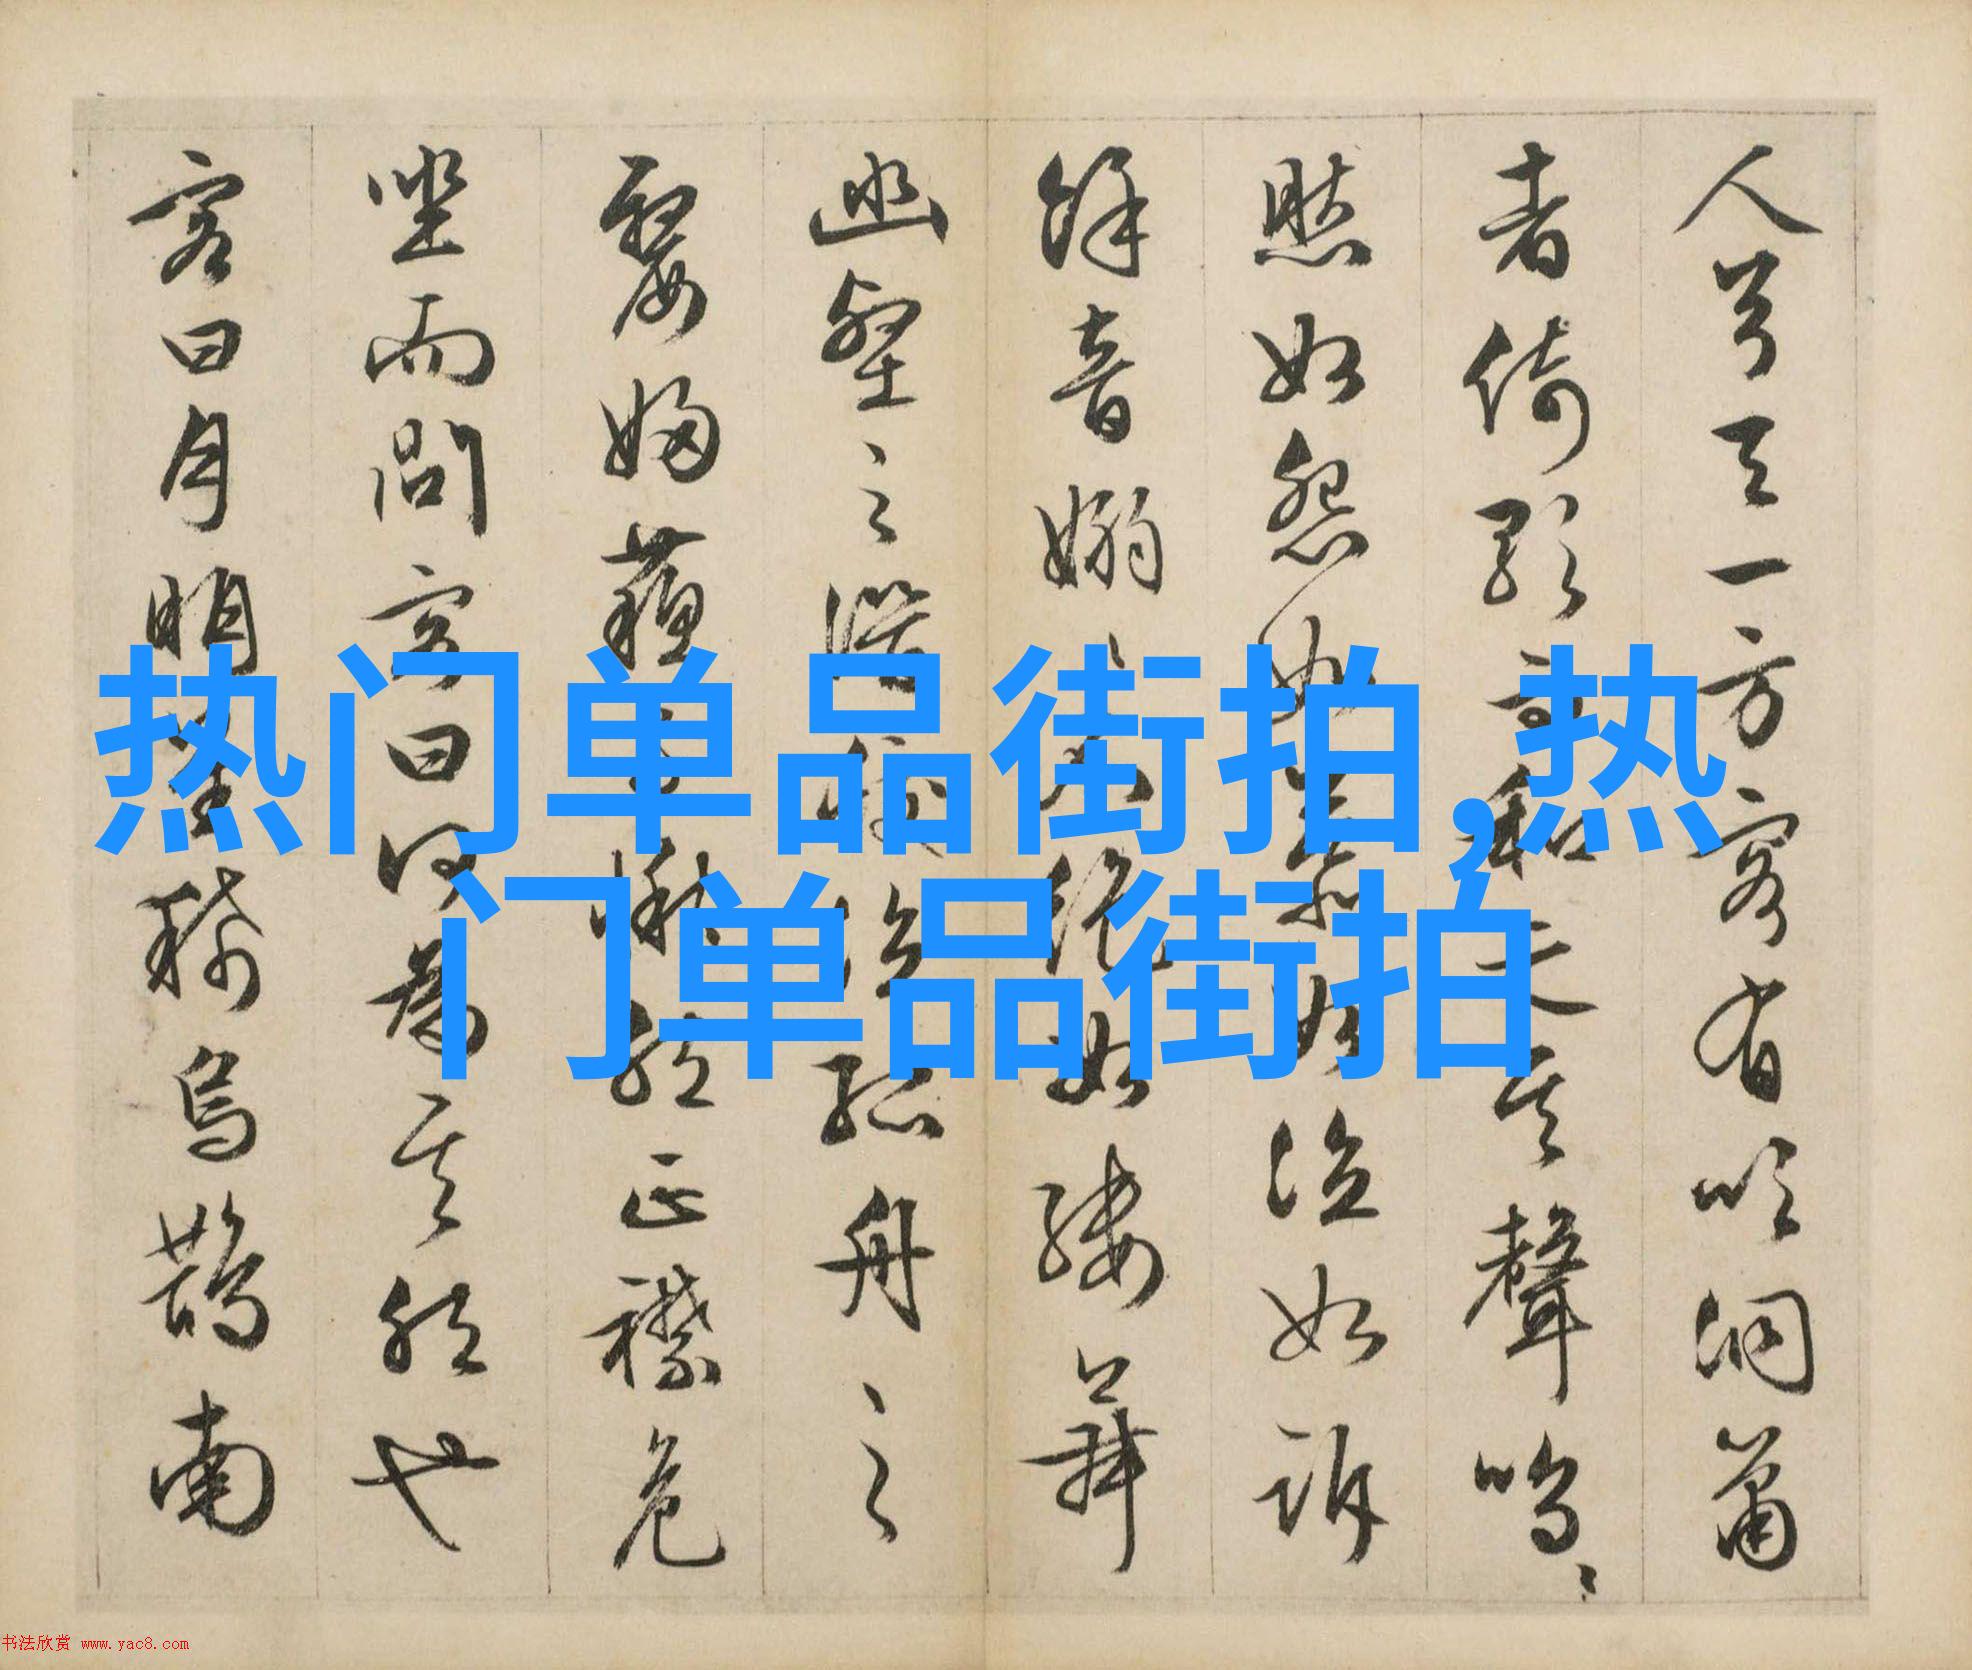 人兮天一方客有吹洞萧
者倚歌而和之其聲嗚、
然如怨如慕如泣如訴
餘音嫋、不绝如缕舞
幽壑之潜蛟泣孤舟之
嫠婦蘇子愀然正襟危
坐而問客曰何為其然也
客曰月明星稀烏鵲南
热门单品街拍,热
门单品街拍
书法欣赏 www.yac8.com